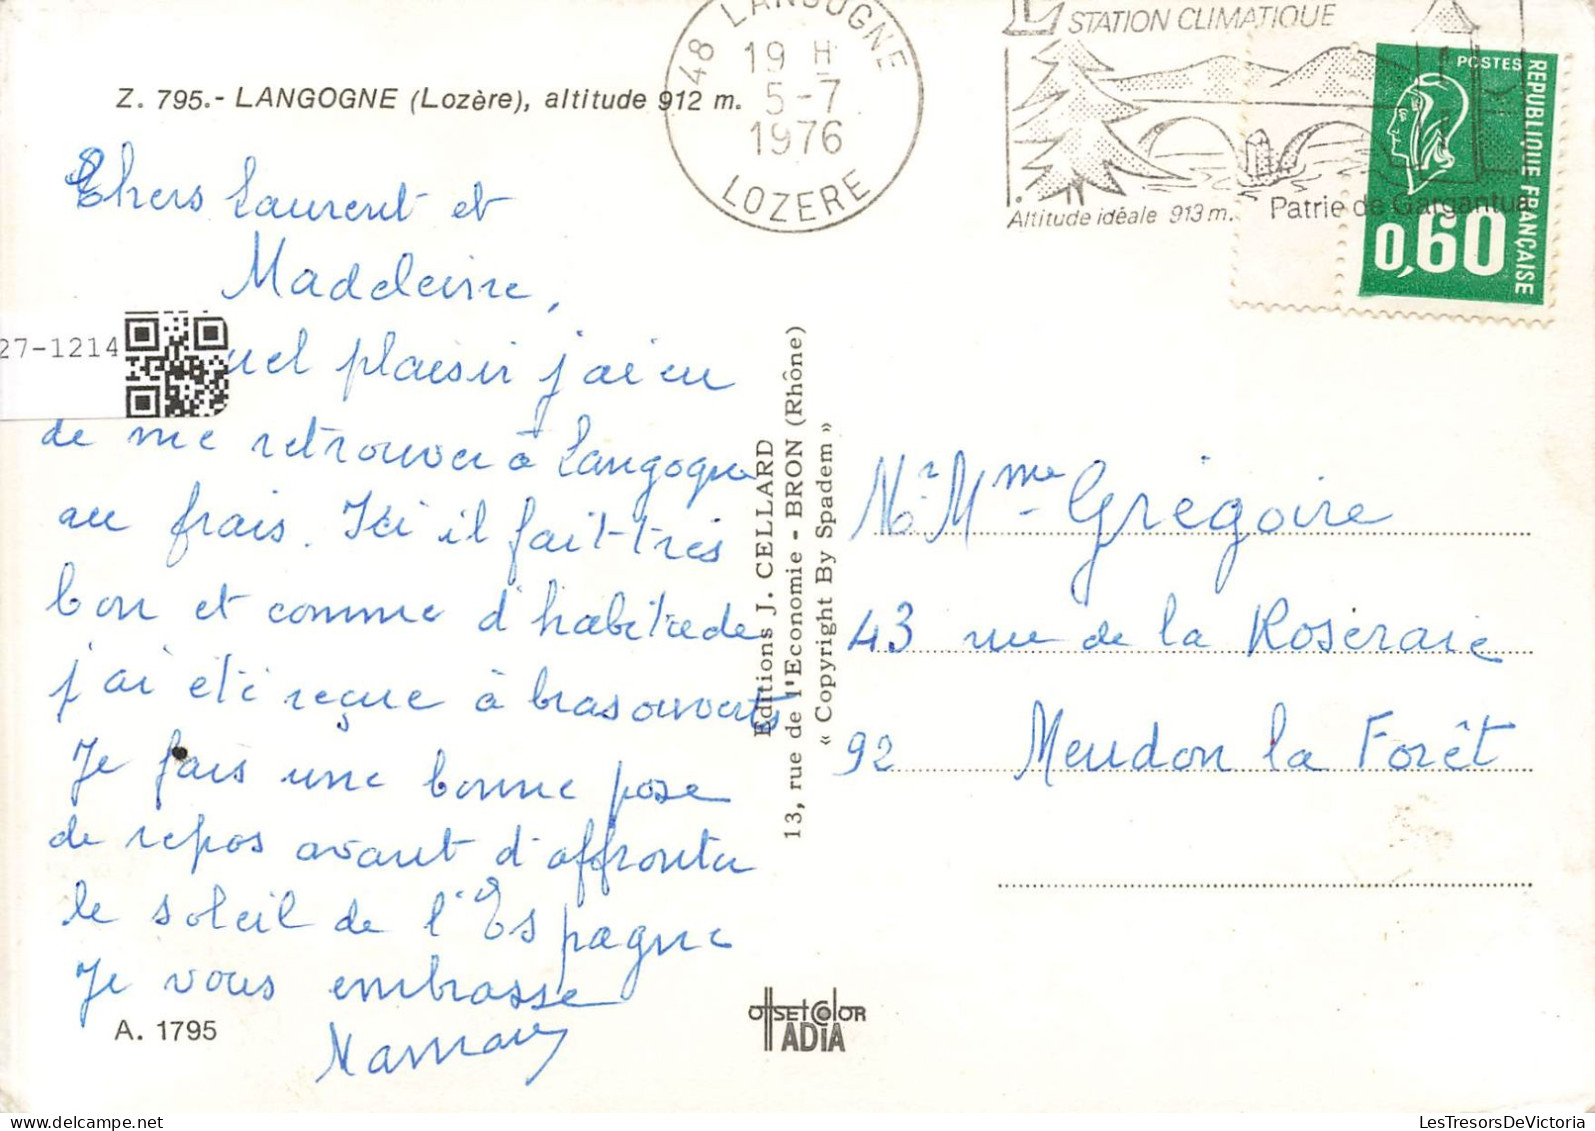 Z. 795.- LANGOGNE (Lozère), altitude 912 m.
48 LANGOGNE
19 H
5-7
1976
LOZERE
STATION CLIMATIQUE
Altitude idéale 913 m.
Patrie de Gargantua
POSTES
REPUBLIQUE FRANÇAISE
0,60
27-1214
Chers Laurent et
Madeleine,
uel plaisir j'ai eu
de me retrouver à Langogne
au frais. Ici il fait très
bon et comme d'habitude
j'ai été reçue à bras ouverts
Je fais une bonne pose
de repos avant d'affronter
le soleil de l'Espagne
Je vous embrasse
A. 1795
Editions J. CELLARD
13, rue de l'Economie - BRON (Rhône)
« Copyright By Spadem »
Mr Mme Grégoire
43 rue de la Roseraie
92 Meudon la Forêt
OffsetColor
ADIA
LesTresorsDeVictoria.com